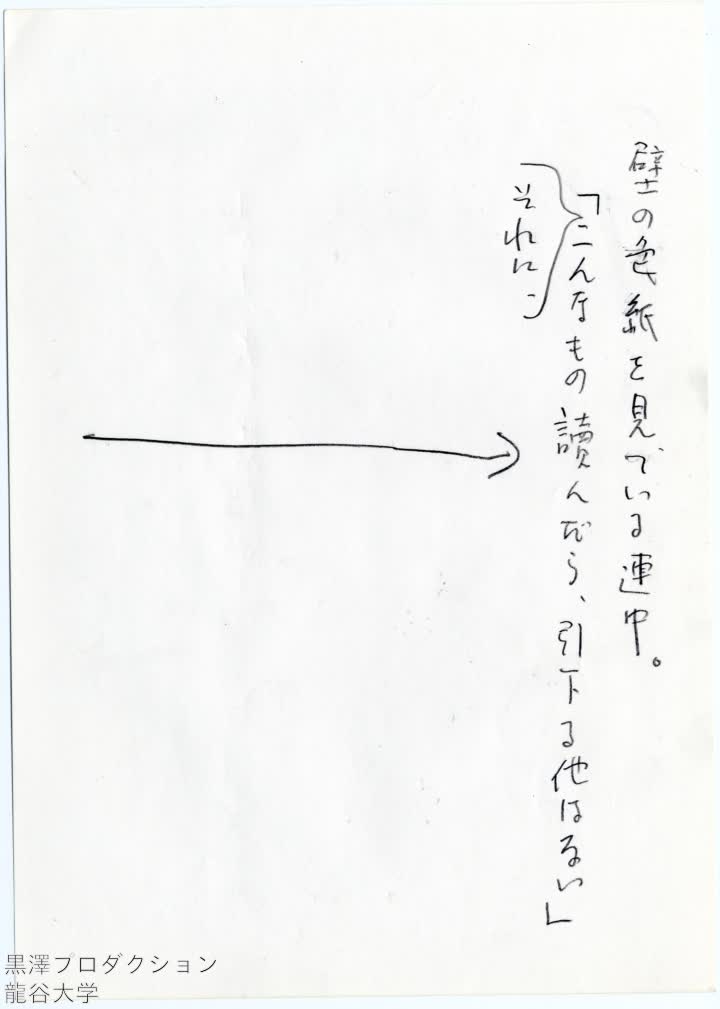 壁の色紙を見ている連中。
「こんなもの讀んだら、引下る他はない」
それにこ
黒澤プロダクション
龍谷大学